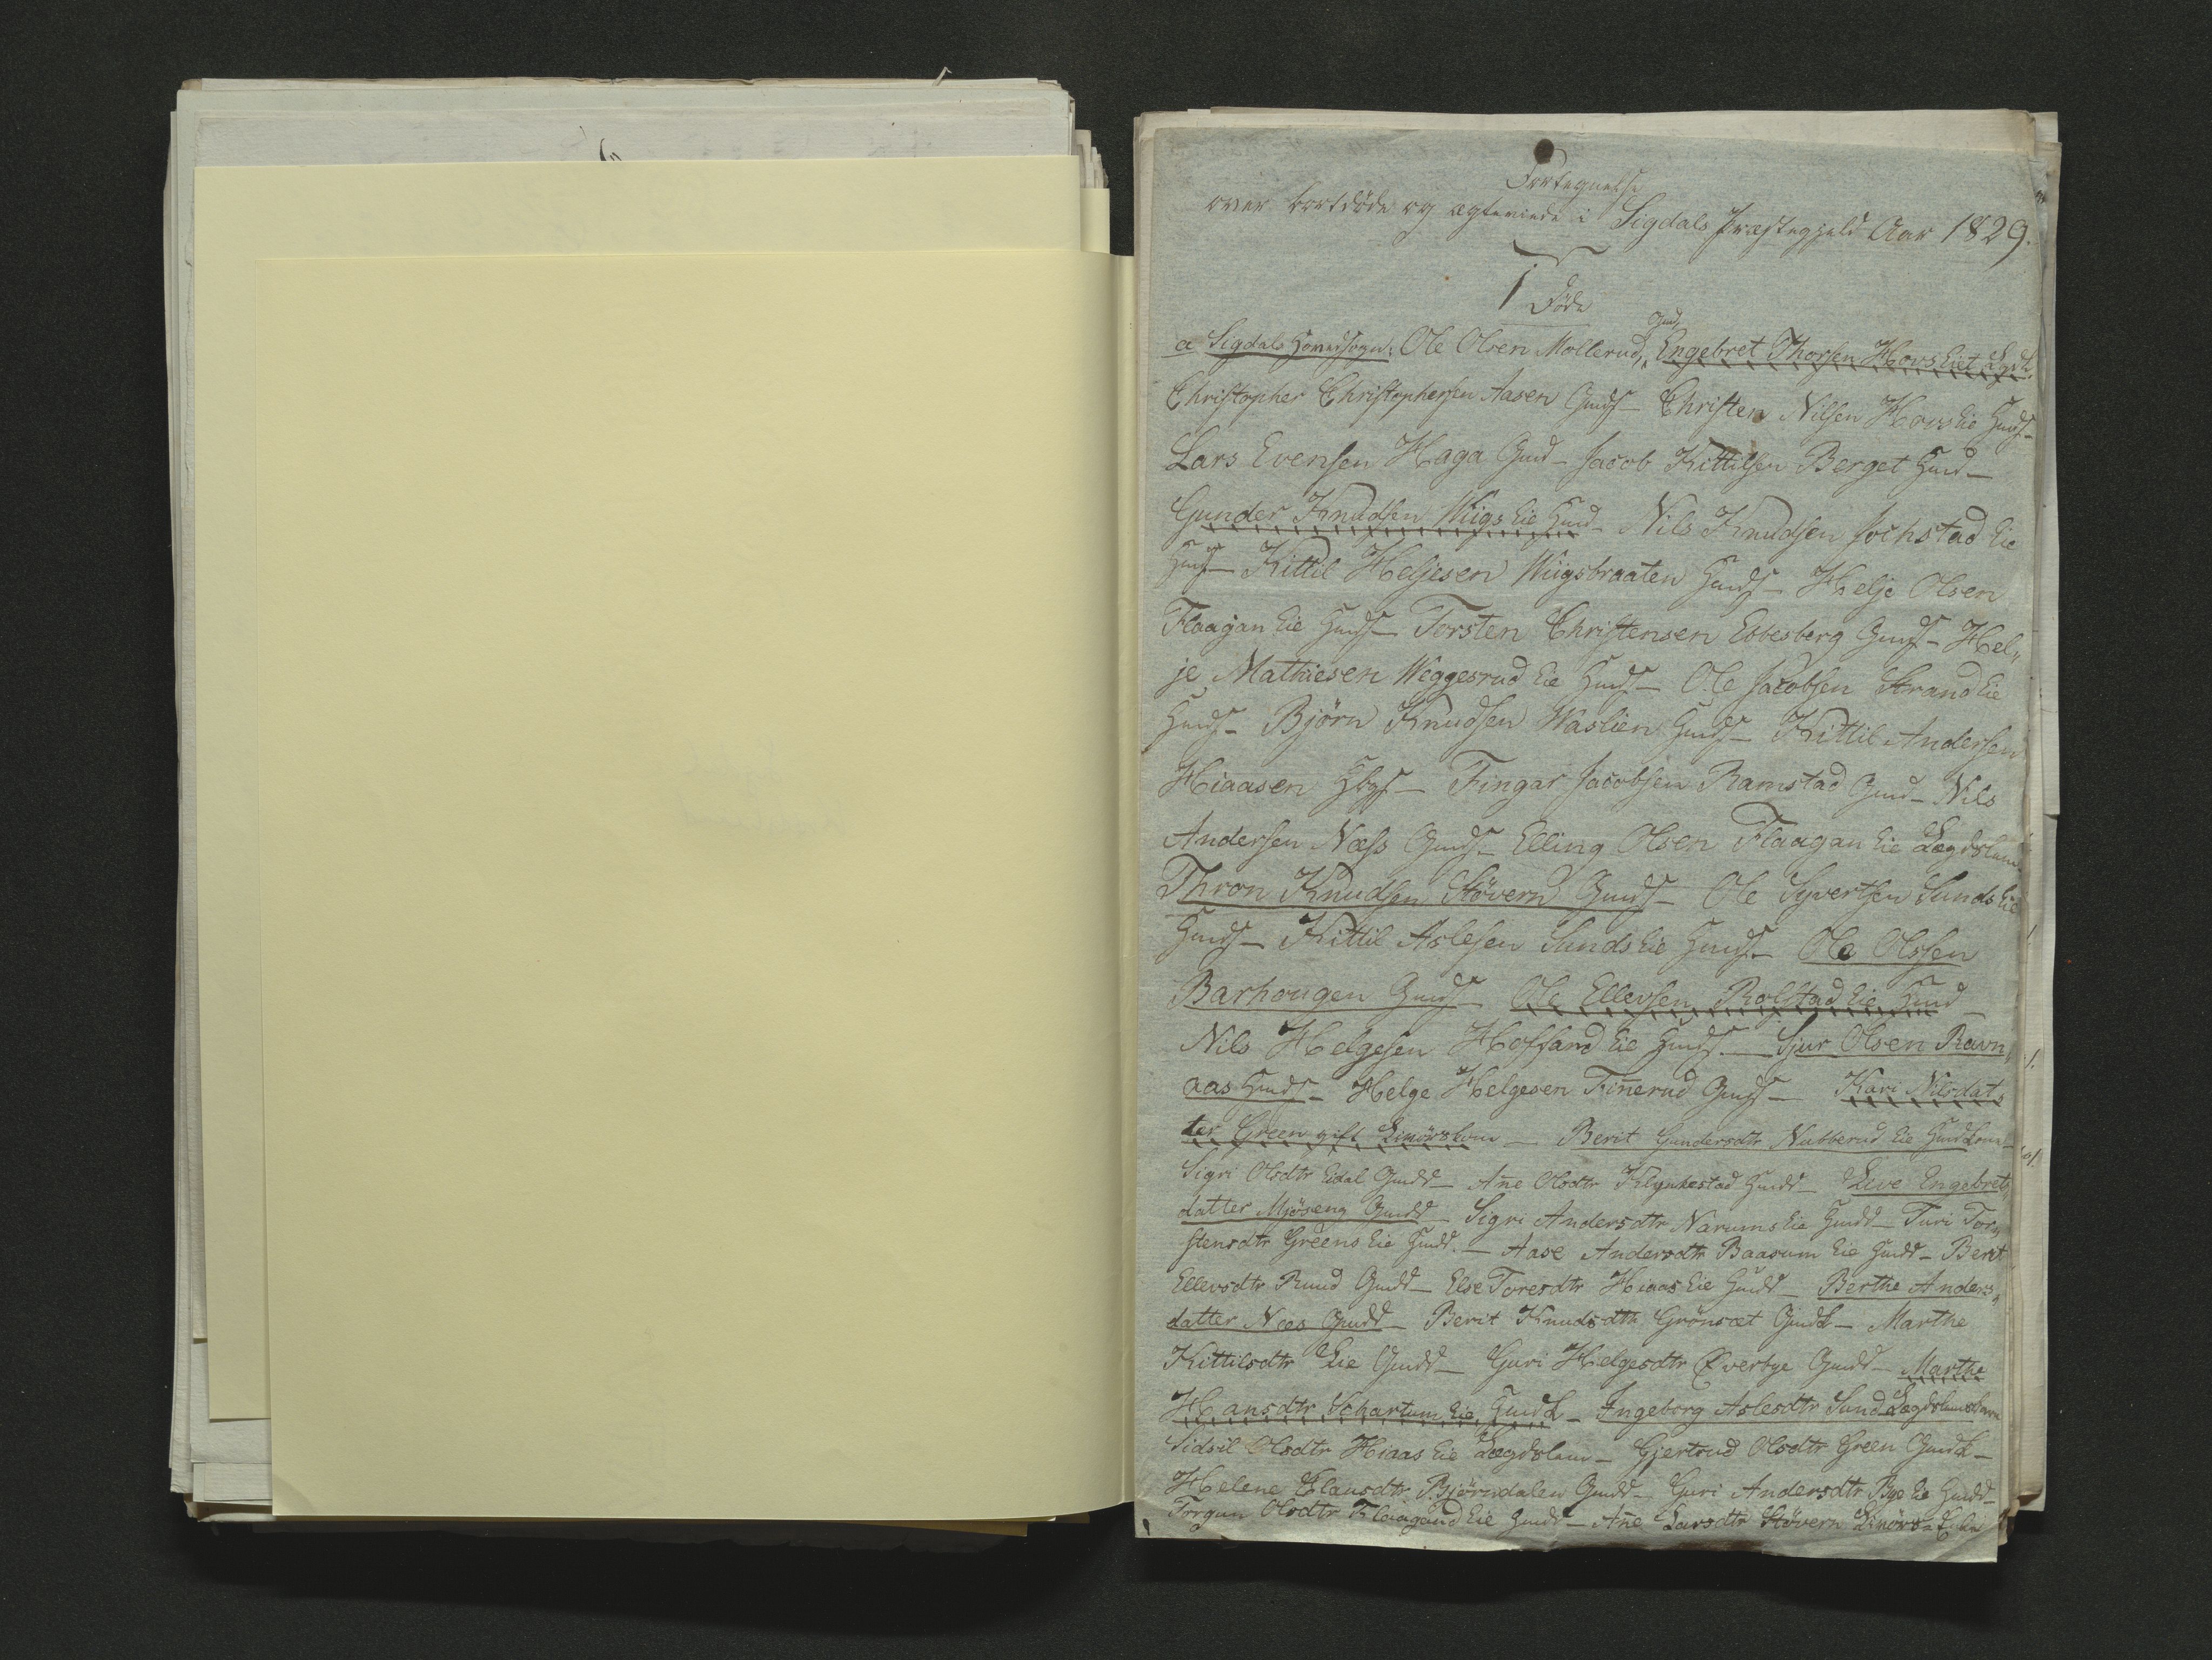 Fortegnelse
over bortdöde og ægteviede i Sigdals Præstegjeld Aar 1829.
I Döde
Gmd
a Sigdals Hovedsogn: Ole Olsen Mollerud, Engebret Thorsen Hovs Eiet Lgdl.
Christopher Christophersen Aasen Gmds – Christen Nilsen Hovs Eie Hmds –
Lars Evensen Haga Gmd – Jacob Kittilsen Berget Hmd –
Gunder Knudsen Wiigs Eie Hmd – Nils Knudsen Jochstad Eie
Hmds – Kittil Heljesen Wiigsbraaten Hmds – Helje Olsen
Flaagan Eie Hmds – Torsten Christensen Ebbesberg Gmds – Hel„
je Mathiesen Weggesrud Eie Hmds – Ole Jacobsen Strand Eie
Hmds – Björn Knudsen Waslien Hmds – Kittil Andersen
Hiaasen – Fingar Jacobsen Ramstad Gmd – Nils
Andersen Næss Gmds – Elling Olsen Flaagan Eie Lægdslem
Thron Knudsen Stövern Gmds – Ole Syvertsen Sunds Eie
Hmds – Kittil Aslesen Sunds Eie Hmds – Ole Olssen
Barhougen Gmds – Ole Ellevsen Rolstad Eie Hmd –
Nils Helgesen Hoffand Eie Hmds – Sjur Olsen Ravn„
aas Hmds – Helge Helgesen Finnerud Gmds – Kari Nilsdat„
ter Green gift – Berit Gundersdtr Nubberud Eie Hmdkone –
Sigri Olsdtr Eidal Gmdd – Ane Olsdtr Klynkestad Hmdd – Live Engebrets„
datter Mjöseng Gmdd – Sigri Andersdtr Narums Eie Hmdd – Turi Tor„
stensdtr Greens Eie Hmdd. – Aase Andersdtr Baasum Eie Hmdd – Berit
Ellevsdtr Ruud Gmdd – Else Toresdtr Hiaas Eie Hmdd – Berthe Anders„
datter Næs Gmdd – Berit Knudsdtr Grönsæt Gmdk – Marthe
Kittilsdtr Lie Gmdd – Guri Helgesdtr Qverbye Gmdd – Marthe
Hansdtr Schartum Eie Hmdk – Ingeborg Aslesdtr Sund
Sidsil Olsdtr Hiaas Eie Lægdslem – Gjertrud Olsdtr Green Gmdk –
Helene Clausdtr Björndalen Gmdd – Guri Andersdtr Bye Eie Hmdd –
Torgun Olsdtr Flaagand Eie Hmdd – Ane Larsdtr Stövern